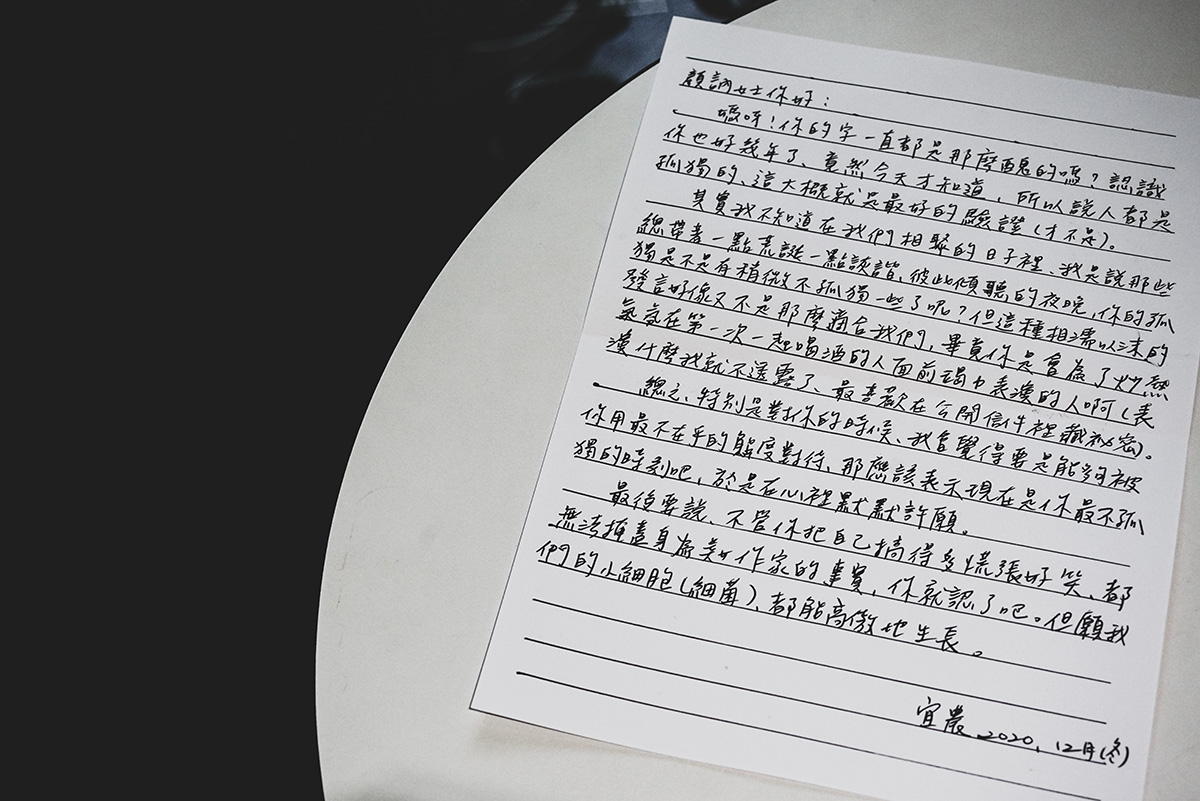 顏訥女士你好：
嗎呀！你的字一直都是那麼醜的嗎？認識
你也好幾年了、竟然今天才知道，所以說人都是
孤獨的、這大概就是最好的驗證（才不是）。
其實我不知道在我們相聚的日子裡、我是說那些
總帶著一點荒誕一點詼諧、彼此傾聽的夜晚，你的孤
獨是不是有稍微不孤獨一些了呢？但這種相濡以沫的
發言好像又不是那麼適合我們，畢竟你是會為了炒熱
氣氛在第一次一起喝酒的人面前竭力表演的人啊（表
演什麼我就不透露了、最喜歡在公開信件裡藏秘密）。
總之、特別是對你的時候、我會覺得要是能夠被
你用最不在乎的態度對待、那應該表示現在是你最不孤
獨的時刻吧，於是在心裡默默許願。
最後要說、不管你把自己搞得多慌張好笑、都
無法掩蓋身為美女作家的事實，你就認了吧。但願我
們的小細胞（細菌）、都能高傲地生長。
宜農 2020, 12月（冬）